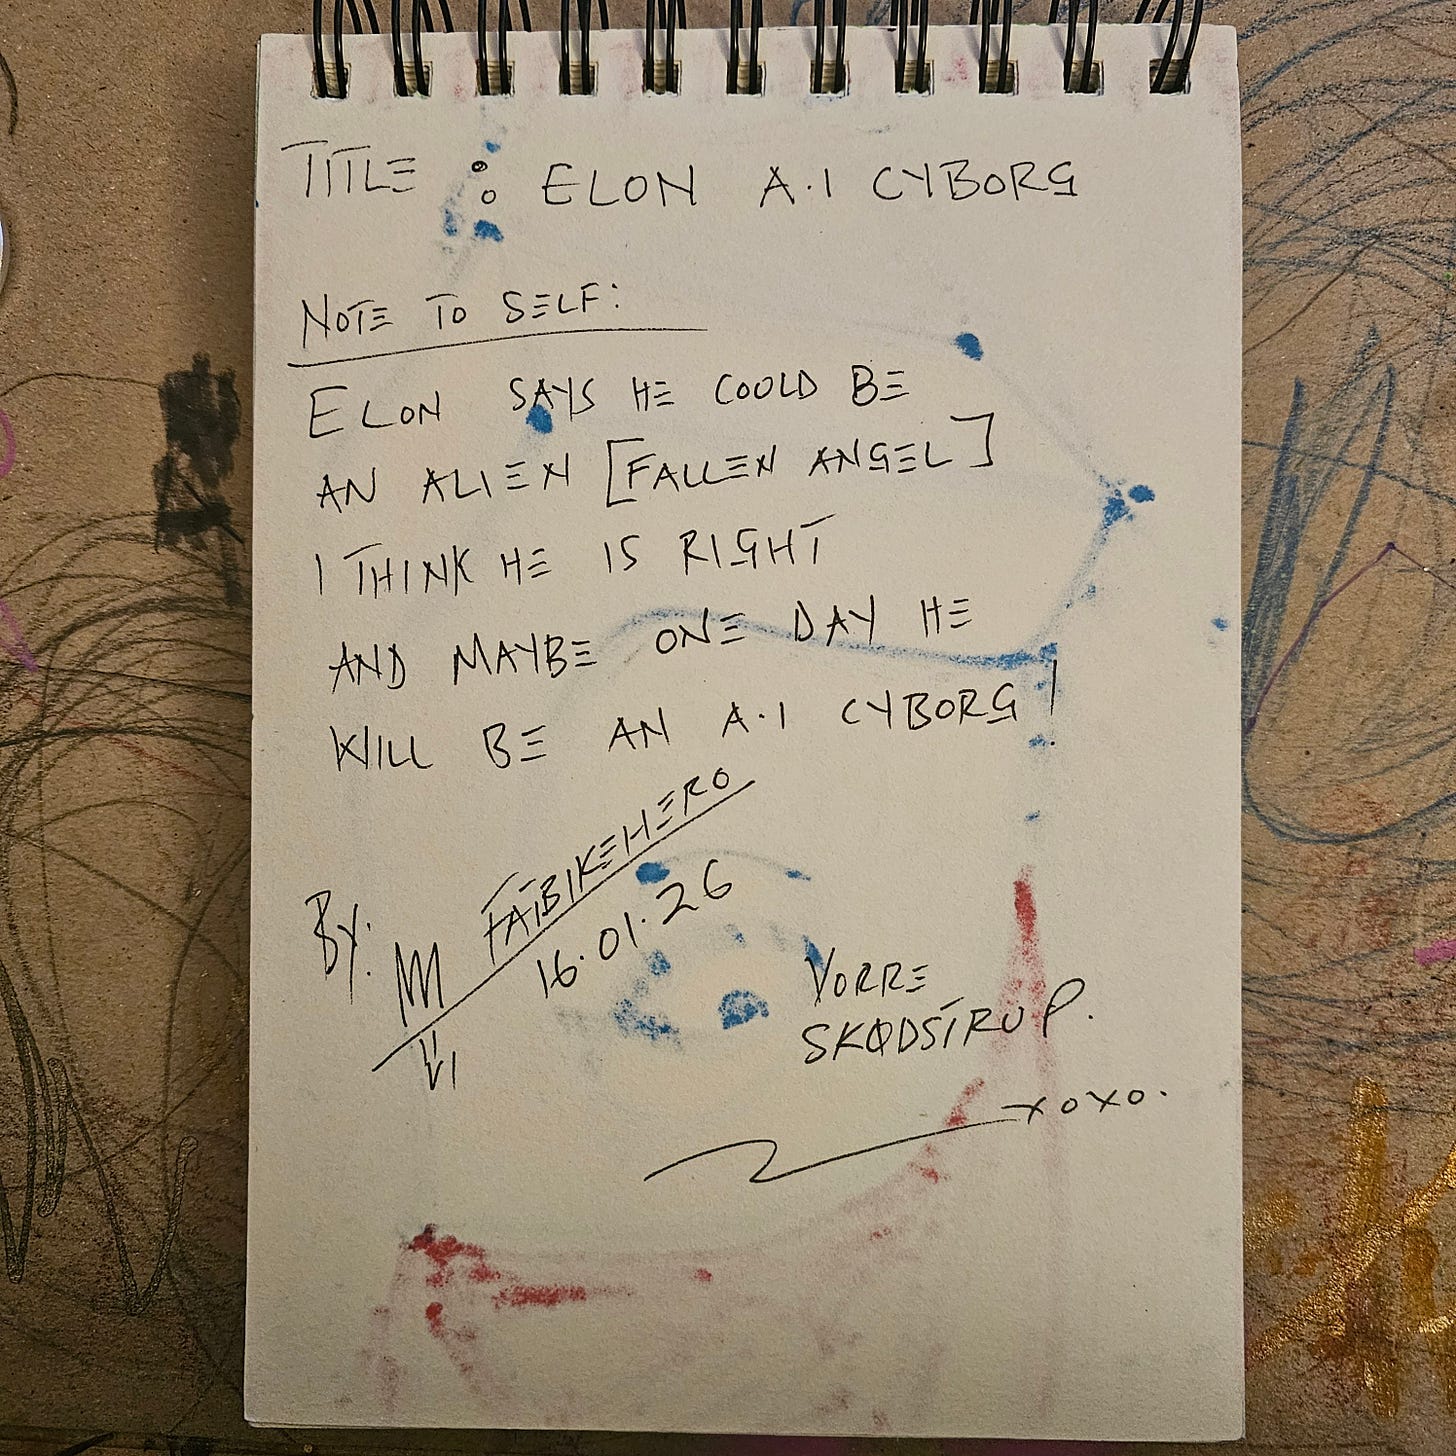 TITLE : ELON A.I CYBORG
NOTE TO SELF:
ELON SAYS HE COULD BE
AN ALIEN [FALLEN ANGEL]
I THINK HE IS RIGHT
AND MAYBE ONE DAY HE
WILL BE AN A.I CYBORG!
BY:
FAIBIKEHERO
16.01.26
VORRE
SKØDSTRUP.
xoxo.